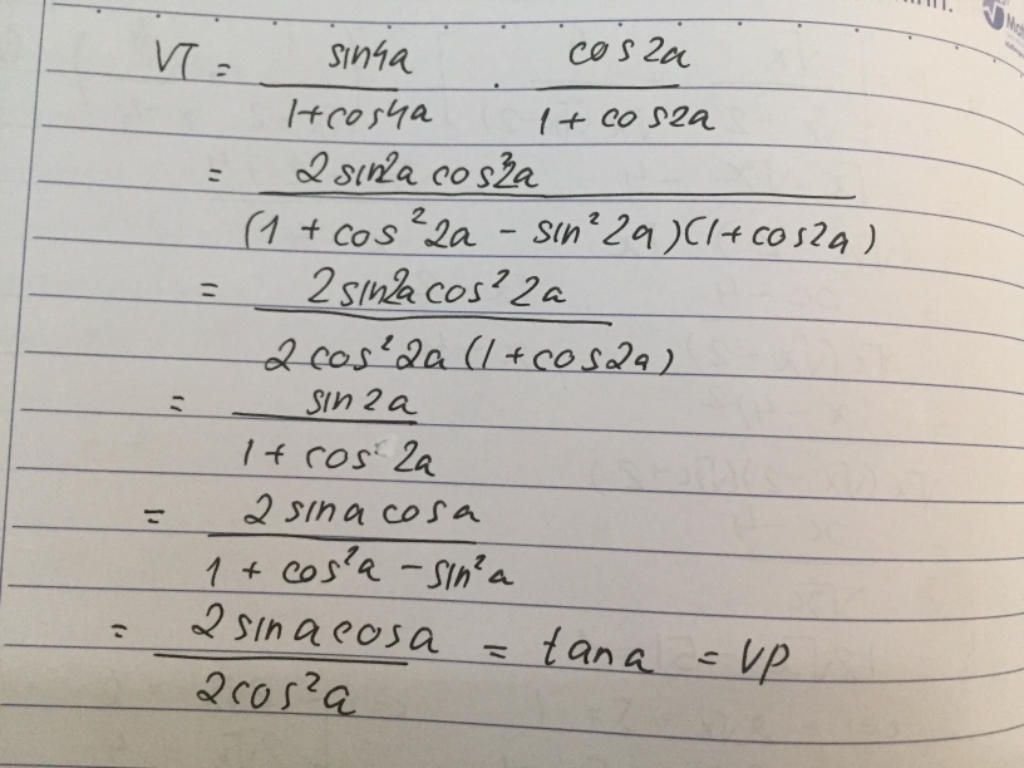 VT = sin4a / 1+cos4a . cos2a / 1 + cos2a
= 2 sin2a cos²2a / (1 + cos²2a - sin²2a)(1+cos2a)
= 2 sin2a cos²2a / 2 cos²2a (1+cos2a)
= sin2a / 1 + cos 2a
= 2 sina cosa / 1 + cos²a - sin²a
= 2 sina cosa / 2cos²a = tana = VP